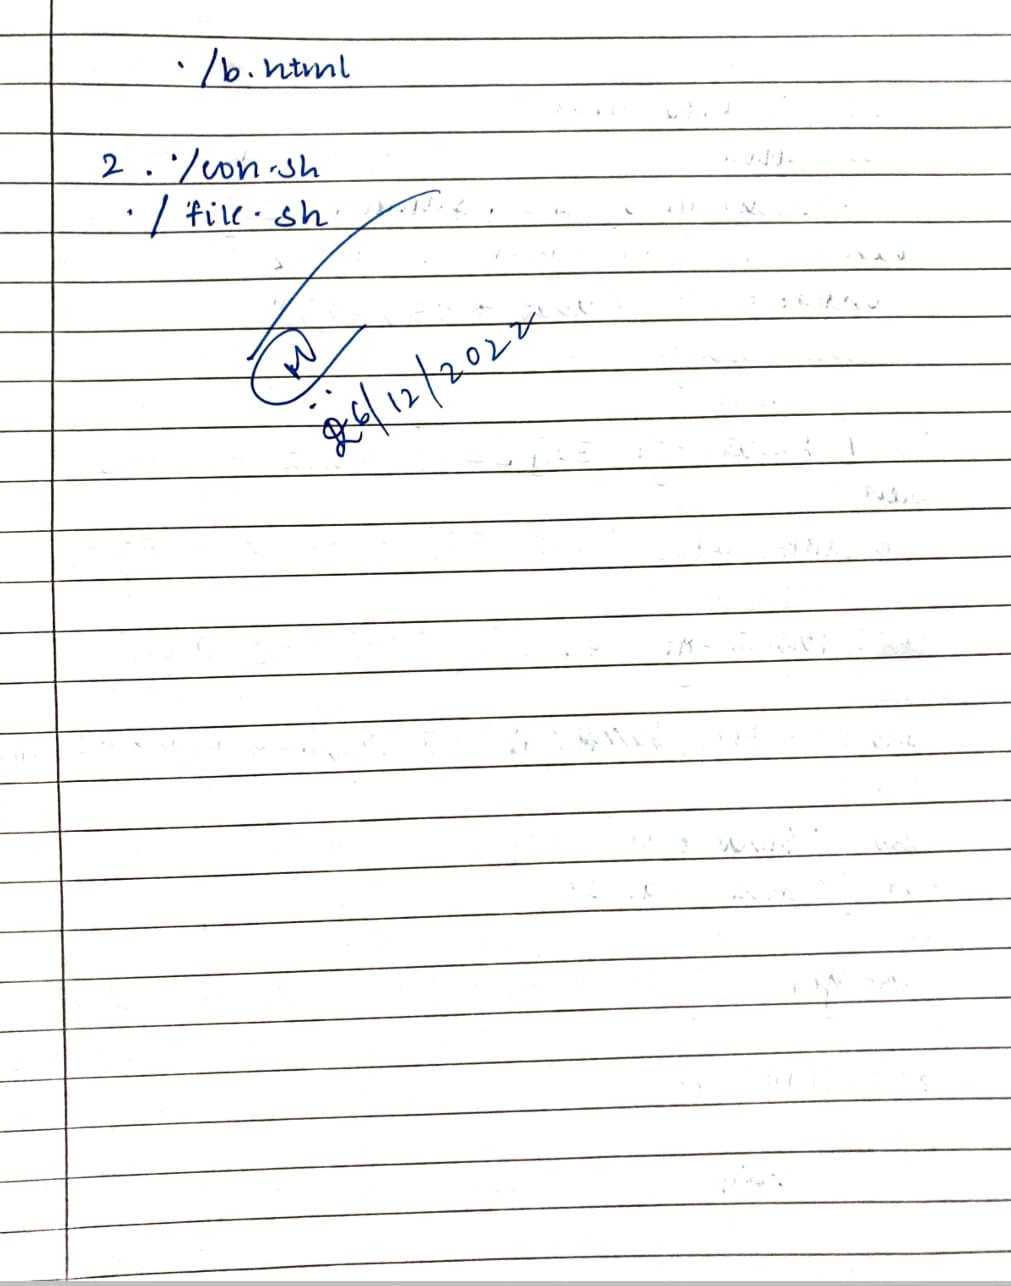 ./b.html
2. ./con.sh
./file.sh
26/12/2022